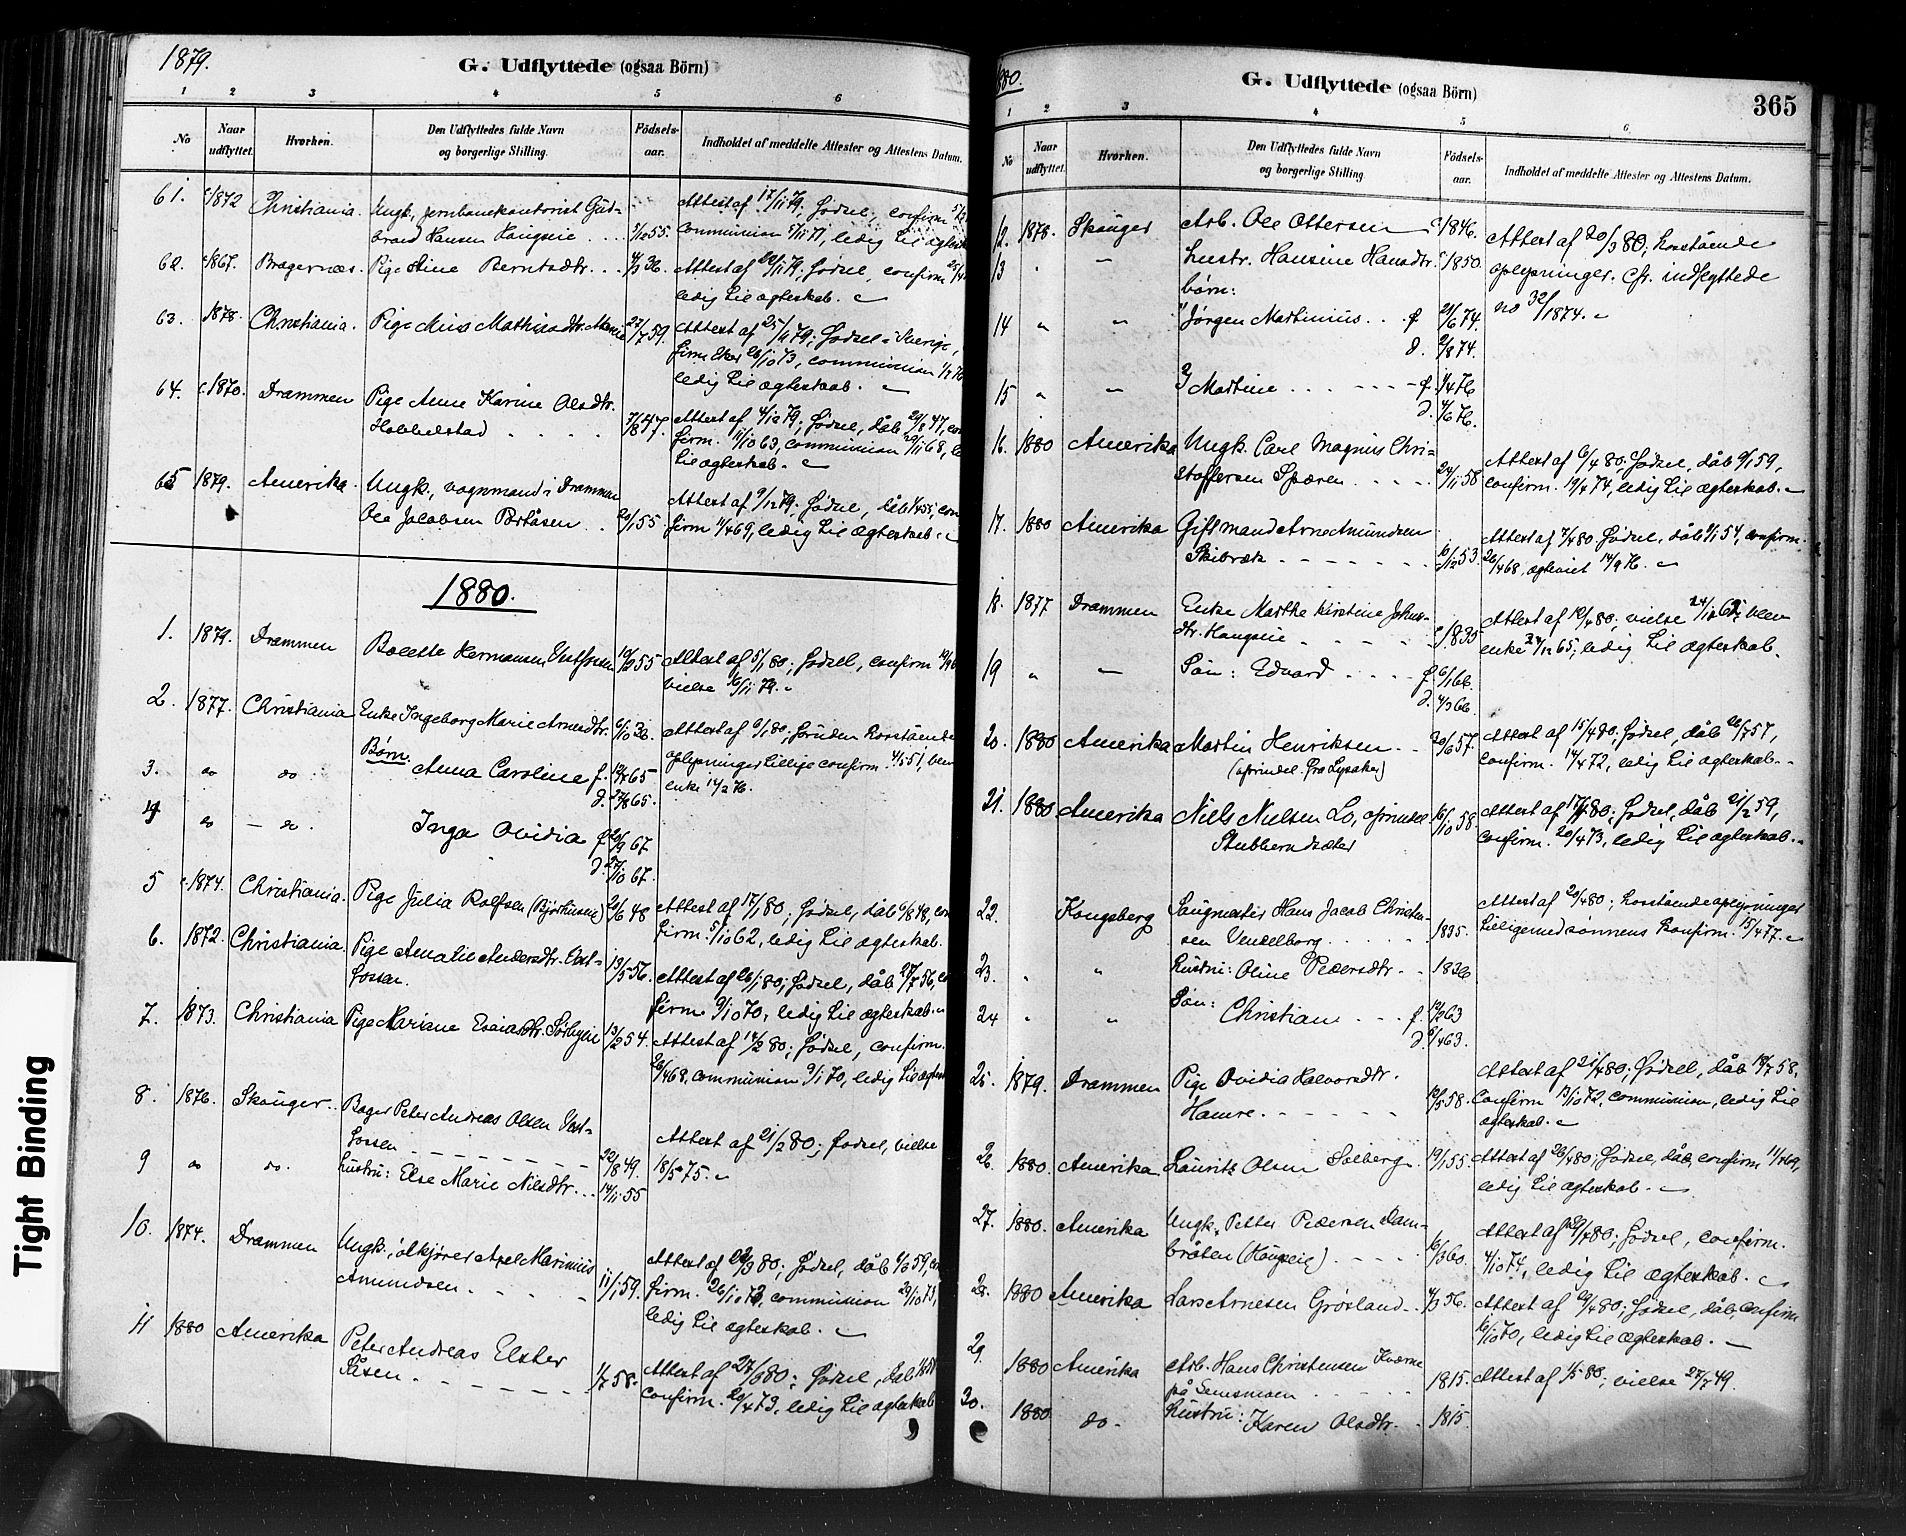 1879.
G. Udflyttede (ogsaa Börn)
1 2 3 4 5 6
No
Naar udflyttet.
Hvorhen.
Den Udflyttedes fulde Navn og borgerlige Stilling.
Födsels-aar.
Indholdet af meddelte Attester og Attestens Datum.
61. c 1872 Christiania. Ungk., jernbanekontorist Gud-
brand Hansen Hougseie . . . . 55. Attest af 17/11 79. Födsel, confirm
communion 71, ledig til ægteskab
62. c 1867. Bragernæs. Pige Stine Berntsdtr. . . 36. Attest af 79. Födsel, confirm
ledig til ægteskab.
63. 1878. Christiania. Pige Mathisdtr. 27/7 59. Attest af 25/11 79; Födsel i Sverige,
firm. Eker 73, communion
ledig til ægteskab.
64. c 1870. Drammen Pige Anne Karine Olsdtr.
Hobbelstad . . . . 7/8 47. Attest af 4/12 79; Födsel, dåb 29/8 47, con
firm. 11/10 63, communion 68, le
til ægteskab.
65 1879. Amerika. Ungk., vognmand i Drammen
Ole Jacobsen Portåsen . . 55 Attest af 9/12 79; Födsel, dåb 1/4 55, con
firm 11/4 69, ledig til ægteskab.
1880.
1. 1879. Drammen Bolette Hermansen Vestfossen 55 Attest af 5/1 80; Födsel, confirm
vielse 16/11 79.
2. 1877. Christiania Enke Ingeborg Marie Arnesdtr. 6/10 36. Attest af 9/1 80; foruden hosstående
oplysninger tillige confirm. 51, blev
enke 14/2 76.
Børn.
3. do do. Anna Caroline f. 65
d. 27/8 65.
4 do — do. Inga Ovidia f. 67
d. 27/10 67.
5 c 1874. Christiania. Pige Julia Rolfsen (Bjørkusene) 20/6 48 Attest af 17/1 80; Födsel, dåb 6/8 48, con
firm. 5/10 62, ledig til ægteskab.
6. 1872. Christiania. Pige Amalie Andersdtr. Vest-
fossen. 13/5 56. Attest af 26/1 80; Födsel, dåb 27/7 56, con
firm. 9/10 70, ledig til ægteskab.
7. 1873. Christiania Pige Mariane 13/2 54. Attest af 14/2 80; Födsel, confirm.
26/4 68, communion 9/1 70, ledig til ægtesk
8. 1876. Skouger. Bager Peter Andreas Olsen Vest-
fossen — — — 22/8 49. Attest af 21/2 80; Födsel, vielse
9 do do. hustru: Else Marie Nilsdtr. . . 14/11 55 75.
10. 1874. Drammen Ungk., ølkjører Axel Marinius
Amundsen . . . . 11/1 59. Attest af 80; Födsel, dåb 59, con
firm. 26/10 73, communion 29/10 73,
ledig til ægteskab.
11 1880 Amerika Peter Andreas Elster
Åsen — — — 1/7 58. Attest af 80; Födsel, dåb
confirm. 20/4 73, ledig til ægteskab
1880.
G. Udflyttede (ogsaa Börn)
365
1 2 3 4 5 6
No
Naar udflyttet.
Hvorhen.
Den Udflyttedes fulde Navn og borgerlige Stilling.
Födsels-aar.
Indholdet af meddelte Attester og Attestens Datum.
12. 1878. Skouger Arb. Ole Ottersen c 1846. Attest af 20/3 80; hosstående
13 . — hustr. Hansine Hansdtr. c 1850. oplysninger. Cfr. indflyttede
børn: no 32/1874.
14 " " 1) Jørgen Martinius . . f. 21/6 74.
d. 2/8 74.
15 " — 2) Martine . . . f. 1/4 76
d. 4/6 76.
16. 1880 Amerika Ungk. Carl Magnus Chri-
stoffersen Spæren . . . . 24/11 58 Attest af 6/4 80; Födsel, dåb 9/1 59,
confirm. 19/4 74, ledig til ægteskab.
17. 1880 Amerika Gift mand Arne Amundsen
Skibræk — — — 16/12 53 Attest af 7/4 80. Födsel, dåb 8/1 54, confirm.
26/4 68, ægteviet 14/9 76.
18. 1877 Drammen Enke Marthe Kirstine Johns-
dtr. Hougseie — — — c 1835 Attest af 10/4 80; vielse 62; blev
enke 65; ledig til ægteskab.
19 " — Søn: Edvard . . . . f. 6/1 66.
d. 4/3 66.
20. 1880 Amerika Martin Henriksen — — 20/6 57. Attest af 15/4 80; Födsel, dåb 26/7 57,
(oprindel. fra Lysaker) confirm. 14/4 72, ledig til ægteskab.
21. 1880 Amerika Niels Nielsen Lo, oprindel. 16/10 58. Attest af 17/4 80; Födsel, dåb 21/2 59,
Stubberudsæter confirm. 20/4 73, ledig til ægteskab.
22. Kongsberg Saugmester Hans Jacob Christen-
sen Vendelborg . . . . 1835. Attest af 20/4 80; hosstående oplysninger
tilligemed sønnens konfirm. 15/4 77.
23. . " hustru: Oline Pedersdtr. . . 1836
24 . " Søn:
Christian . . . f. 63
d. 6/4 63.
25. 1879. Drammen Pige Ovidia Halvorsdtr.
Hamre. — — — 58. Attest af 21/4 80; Födsel, dåb 18/7 58,
confirm 13/10 72, communion, ledig til
ægteskab.
26. 1880. Amerika Laurits Olsen Solberg. 19/1 55. Attest af 26/4 80; Födsel, dåb, confirm 11/4 69,
ledig til ægteskab.
27. 1880. Amerika Ungk. Petter Pedersen Dam-
bråten (Hougseie) . . . . 16/3 60. Attest af 29/4 80; Födsel, confirm.
4/10 74, ledig til ægteskab.
28. 1880 Amerika Lars Arnesen Grøsland 56. Attest af 29/4 80; Födsel, dåb, confirm
16/10 70, ledig til ægteskab.
29. 1880 Amerika Arb. Hans Christensen Kværne
på Semsmoen . . . . 1815. Attest af 1/5 80; vielse 27/7 49.
30. 1880 do. hustru: Karen Olsdtr. . 1815.
Tight Binding